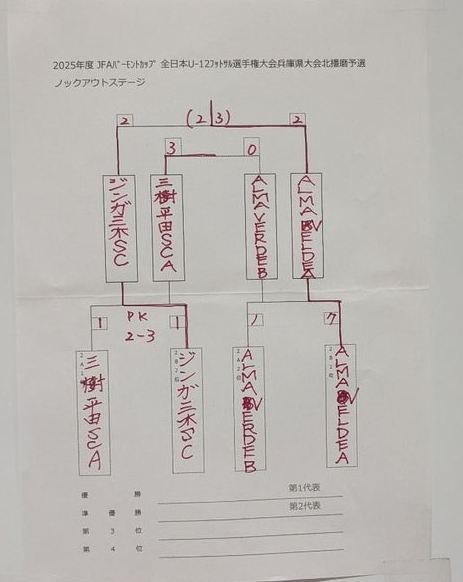 2025年度 JFAバーモントカップ 全日本U-12フットサル選手権大会兵庫県大会北播磨予選
ノックアウトステージ
2 (2 3) 2
3 0
ジンガ三木SC
三樹平田SCA
ALMAVERDEB
ALMA VELDEA
1 PK 1
2-3
1 7
2A1位
三樹平田SCA
2B2位
ジンガ三木SC
2A2位
ALMA VERDEB
2B1位
ALMA VELDEA
第1代表
優勝
第2代表
準優勝
第3位
第4位